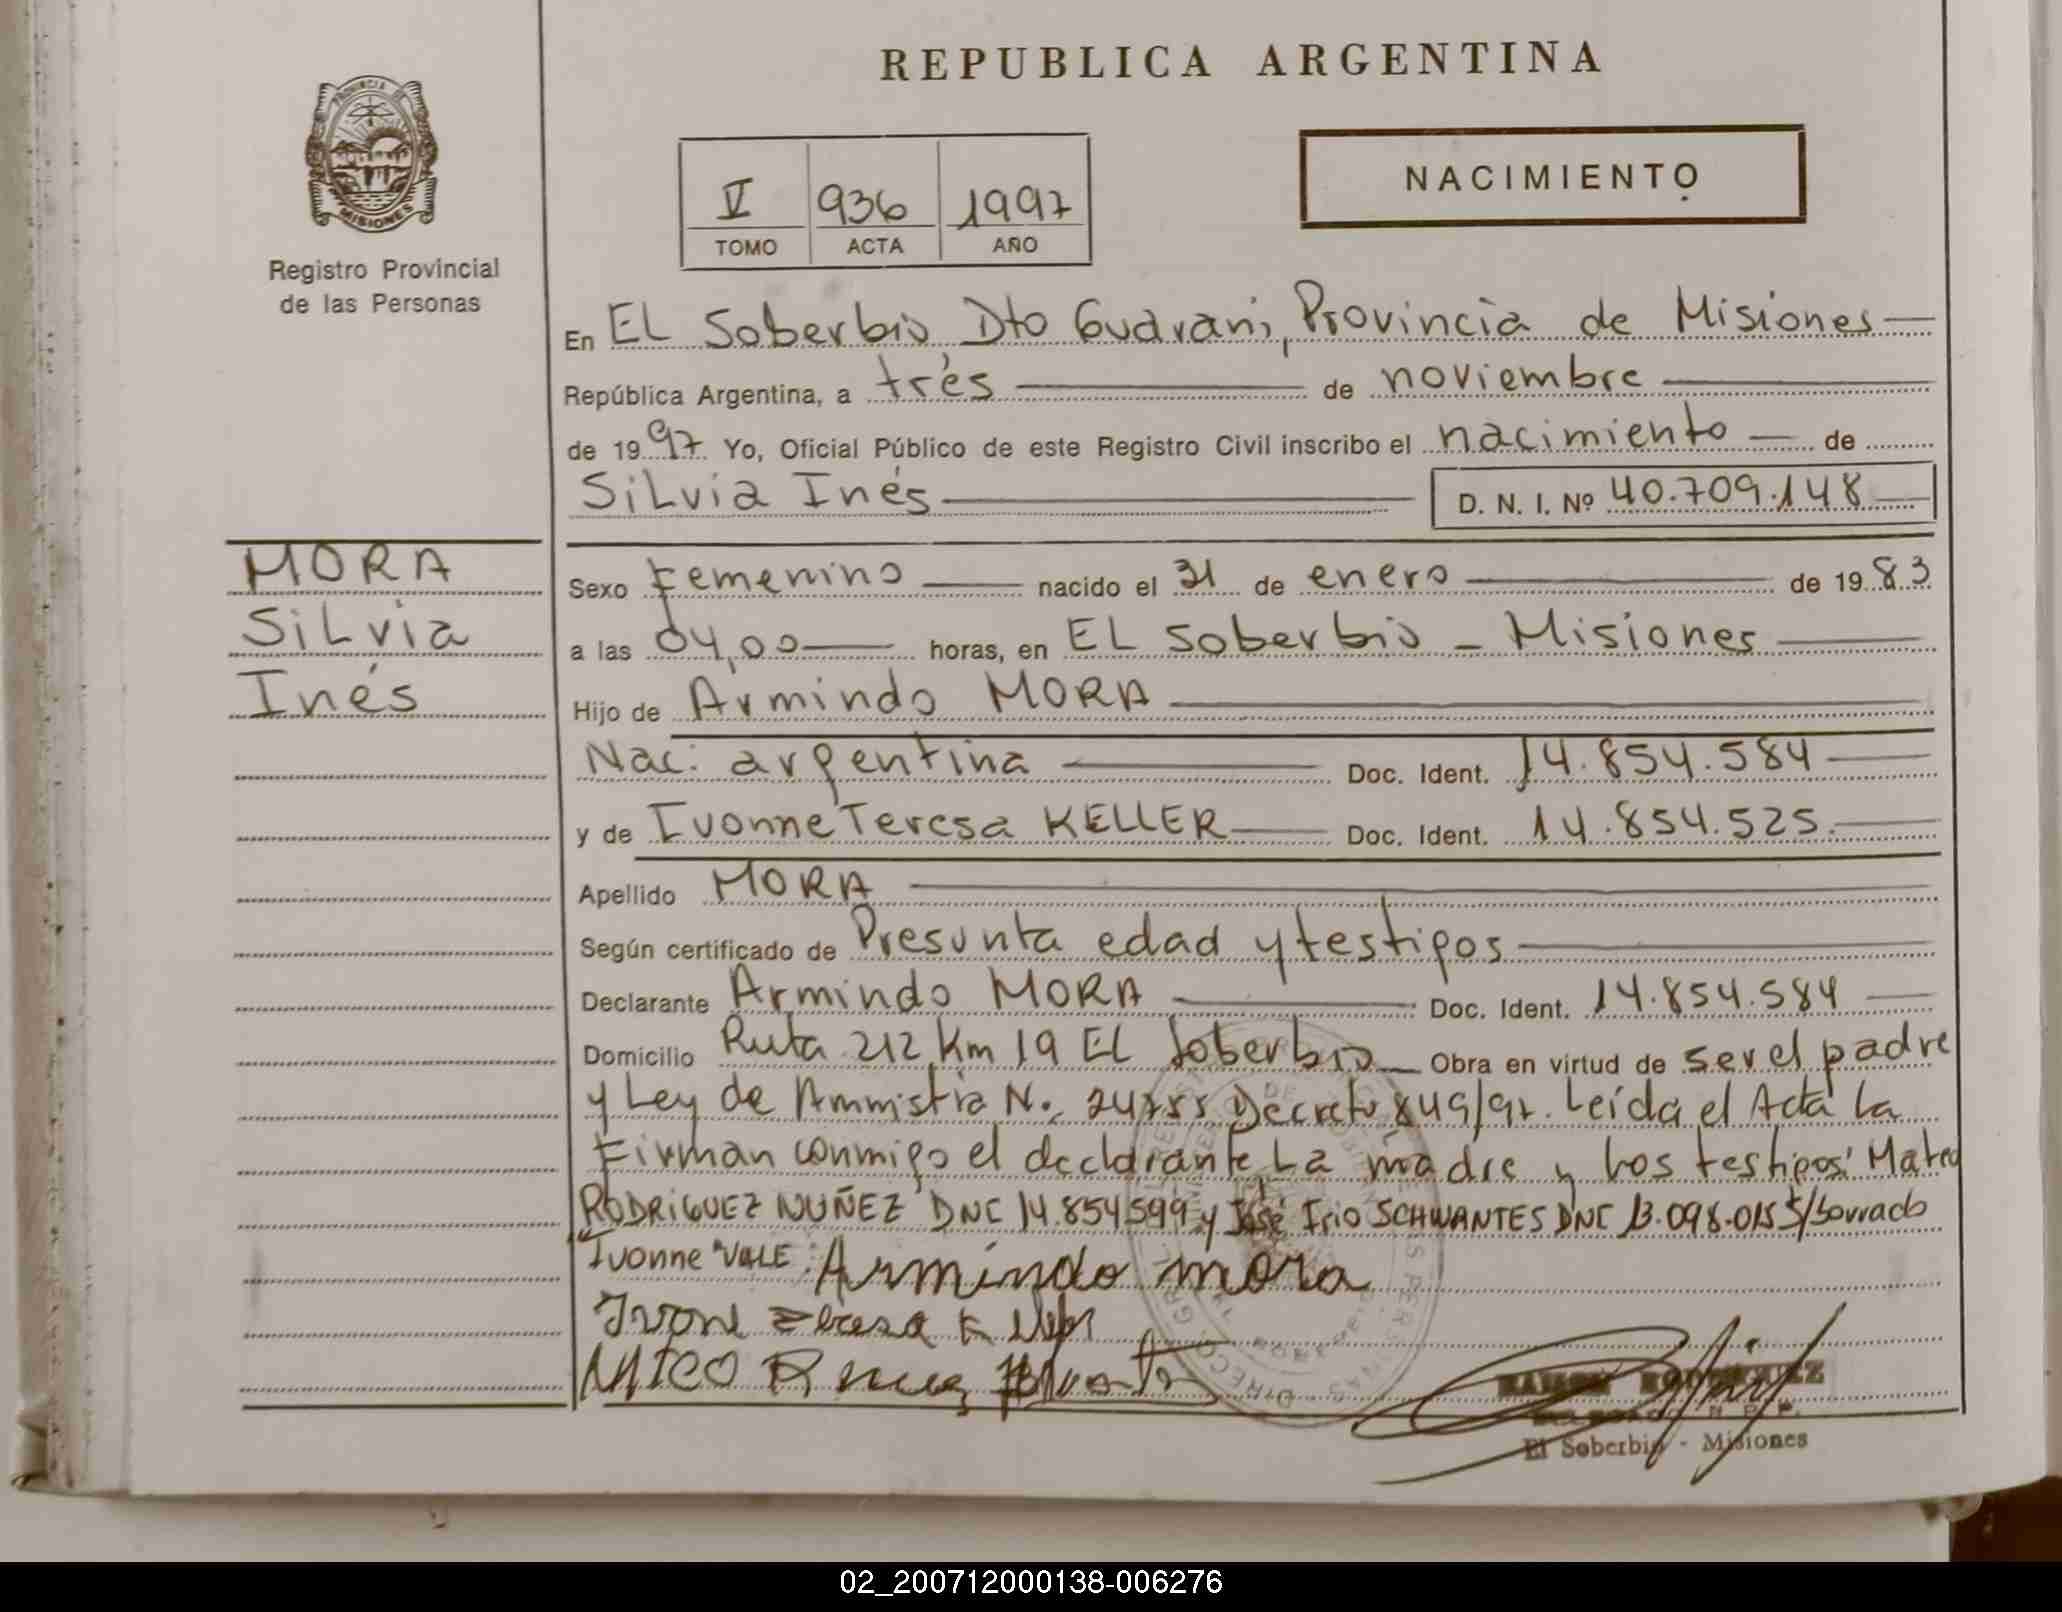 REPUBLICA ARGENTINA
PROVINCIA DE
MISIONES
Registro Provincial
de las Personas
V 936 1997
TOMO ACTA AÑO
NACIMIENTO
En EL Soberbio Dto Guarani, Provincia de Misiones
República Argentina, a trés de noviembre
de 1997 Yo, Oficial Público de este Registro Civil inscribo el nacimiento de
SiLvia Inés D. N. I. Nº 40.709.148
MORA
SiLvia
Inés
Sexo Femenino nacido el 31 de enero de 1983
a las 04,00 horas, en EL Soberbio - Misiones
Hijo de Armindo MORA
Nac: argentina Doc. Ident. 14.854.584
y de Ivonne Teresa KELLER Doc. Ident. 14.854.525.
Apellido MORA
Según certificado de Presunta edad y testigos
Declarante Armindo MORA Doc. Ident. 14.854.584
Domicilio Ruta 212 Km 19 EL Soberbio Obra en virtud de ser el padre
y Ley de Ammistia No. 24755 Decreto 849/97. Leída el Acta La
Firman conmigo el declarante La madre y Los testigos: Mateo
RODRIGUEZ NUÑEZ DNI 14.854599 y José Irio SCHWANTES DNI 13.098.015 S/borrado
"Ivonne" VALE. Armindo mora
Ivone Teresa Keller
RAMON RODRIGUEZ
El Soberbio - Misiones
02_200712000138-006276